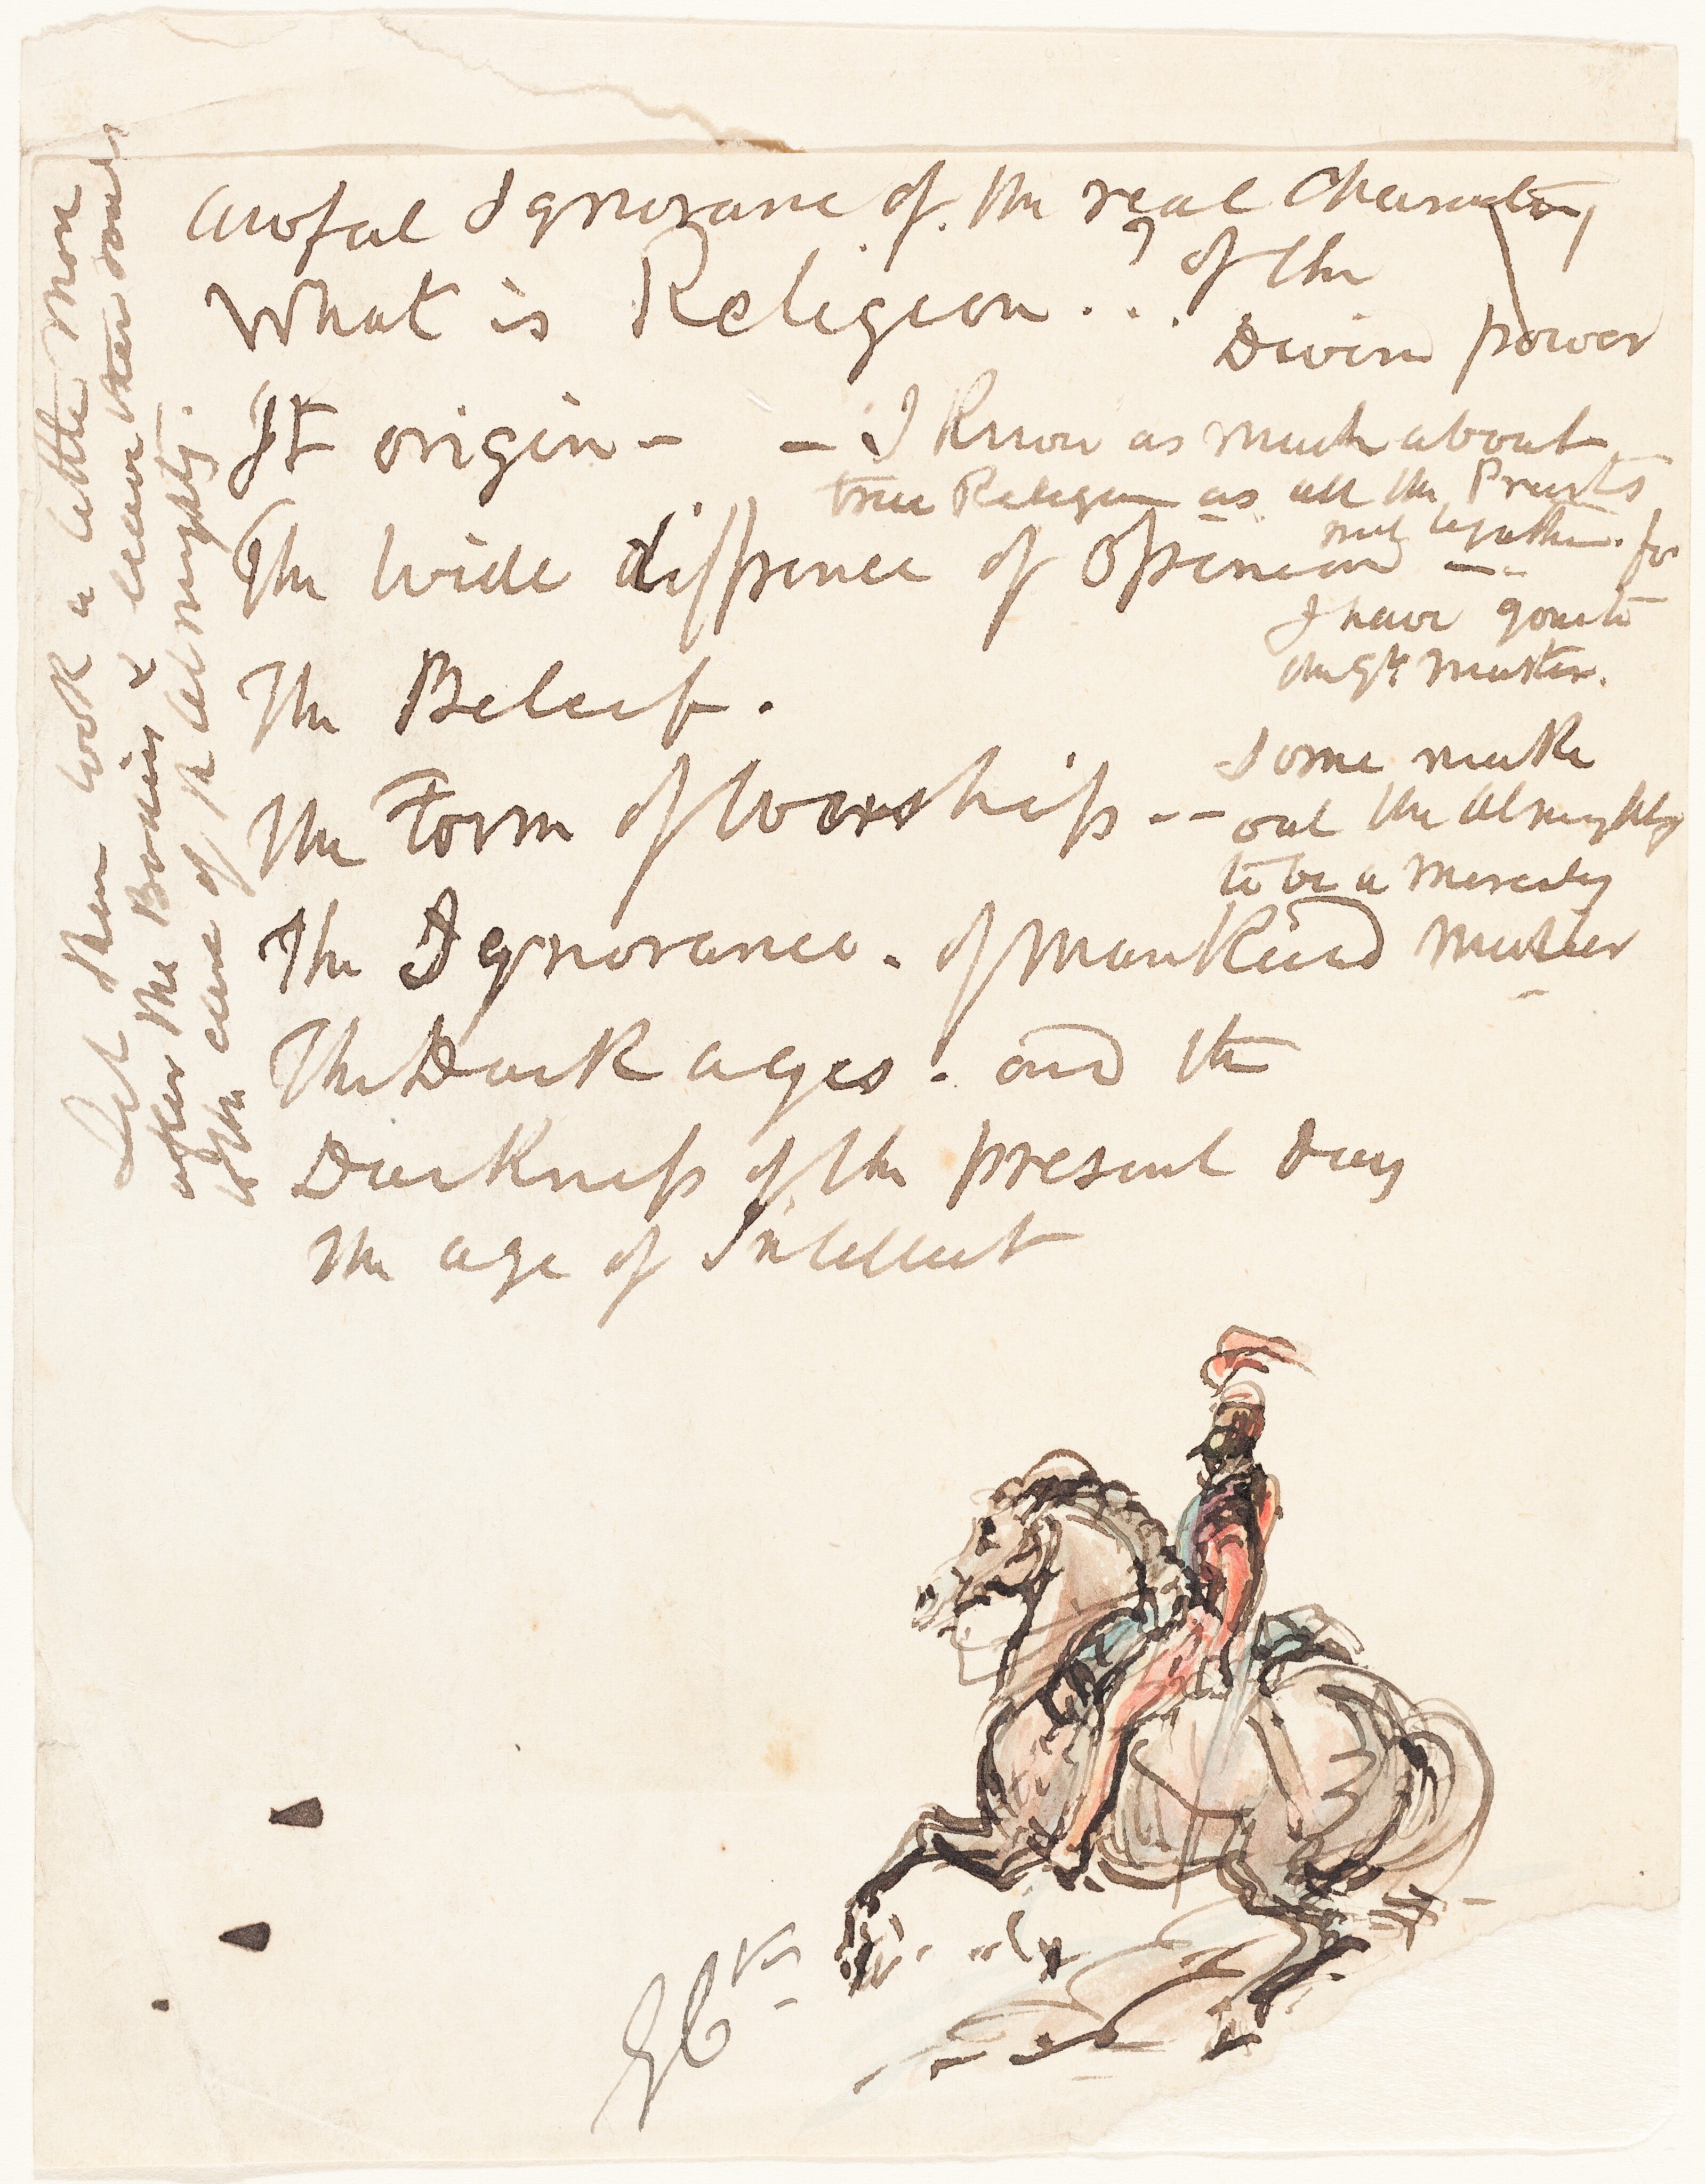 awful Ignorance of the real Character,
What is Religion...? of the
Divine power
It origin - - I know as much about
true Religion as all the Priests
put together. for
The wide diffrence of Opinion --
I have gone to
the Gt Master.
The Beleif.
The Form of Worship -- Some make
out the Almighty
to be a Merciles
The Ignorance. of Mankind Master
The Dark ages. and the
Darkness of the present day
the age of Intellect
Let them look a little more
after the Bodies & leave their souls
to the care of the Almighty.